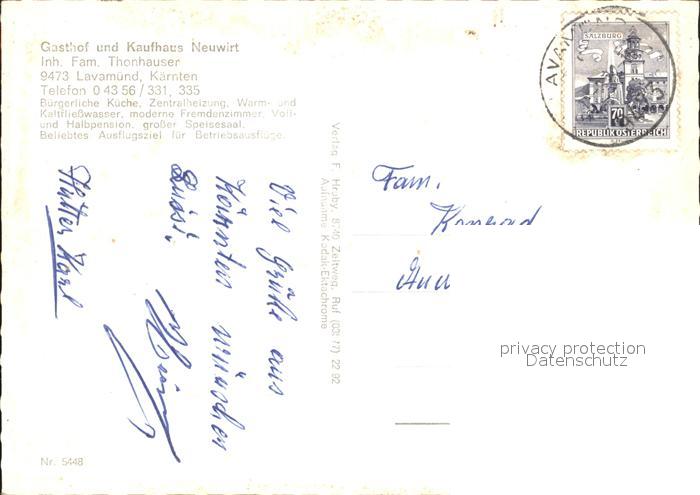 Gasthof und Kaufhaus Neuwirt
Inh. Fam. Thonhauser
9473 Lavamünd, Kärnten
Telefon 0 43 56 / 331, 335
Bürgerliche Küche, Zentralheizung, Warm- und
Kaltfließwasser, moderne Fremdenzimmer, Voll-
und Halbpension, großer Speisesaal.
Beliebtes Ausflugsziel für Betriebsausflüge.
Viel Grüße aus
Kärnten wünschen
Hütter Karl
Nr. 5448
Verlag F. Hruby, 8740 Zeltweg, Ruf (03577) 22 92
Aufnahme Kodak-Ektachrome
SALZBURG
70
REPUBLIK ÖSTERREICH
Fam.
Konrad
Auer
privacy protection
Datenschutz